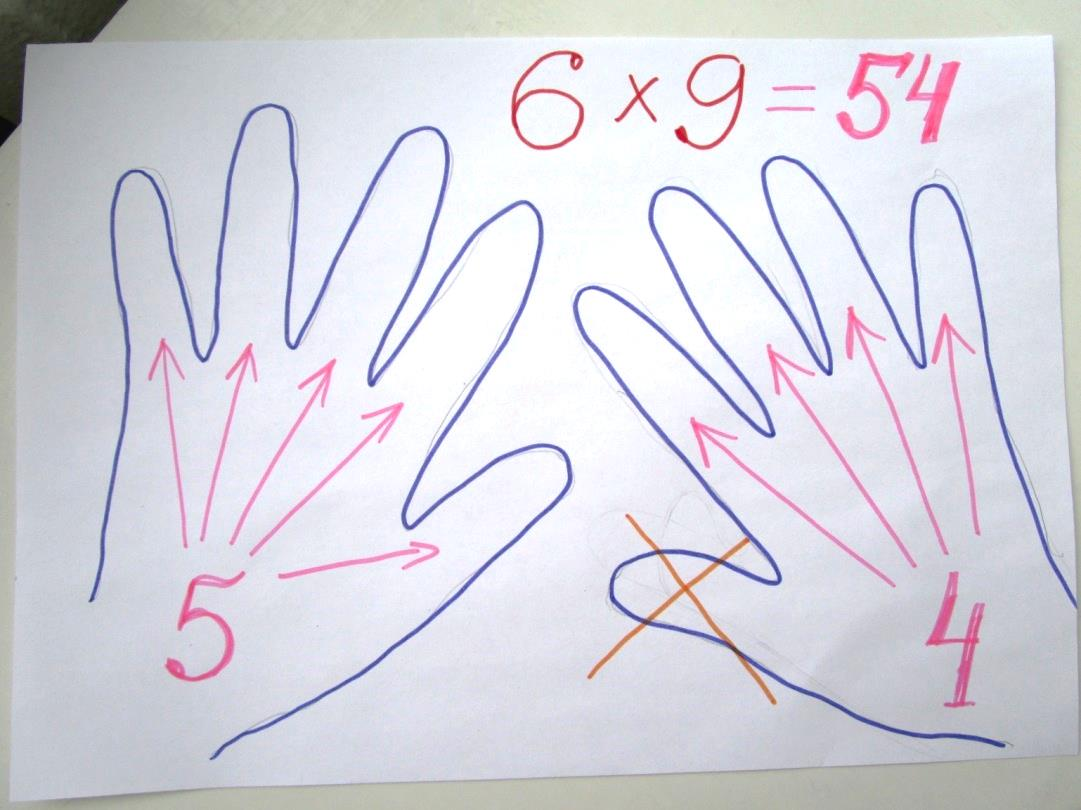 6 × 9 = 54
5
4